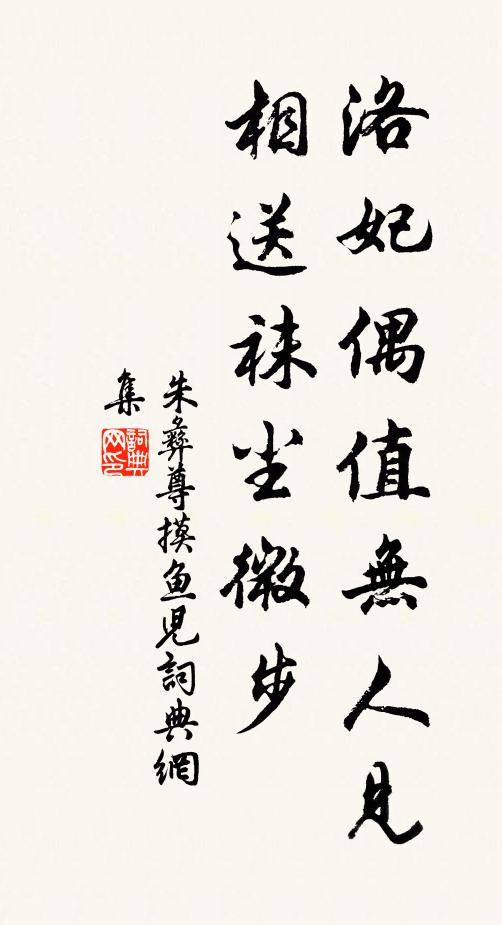 洛妃偶值無人見
相送袜尘微步
朱彝尊摸鱼児詞典網
集
詞典网印